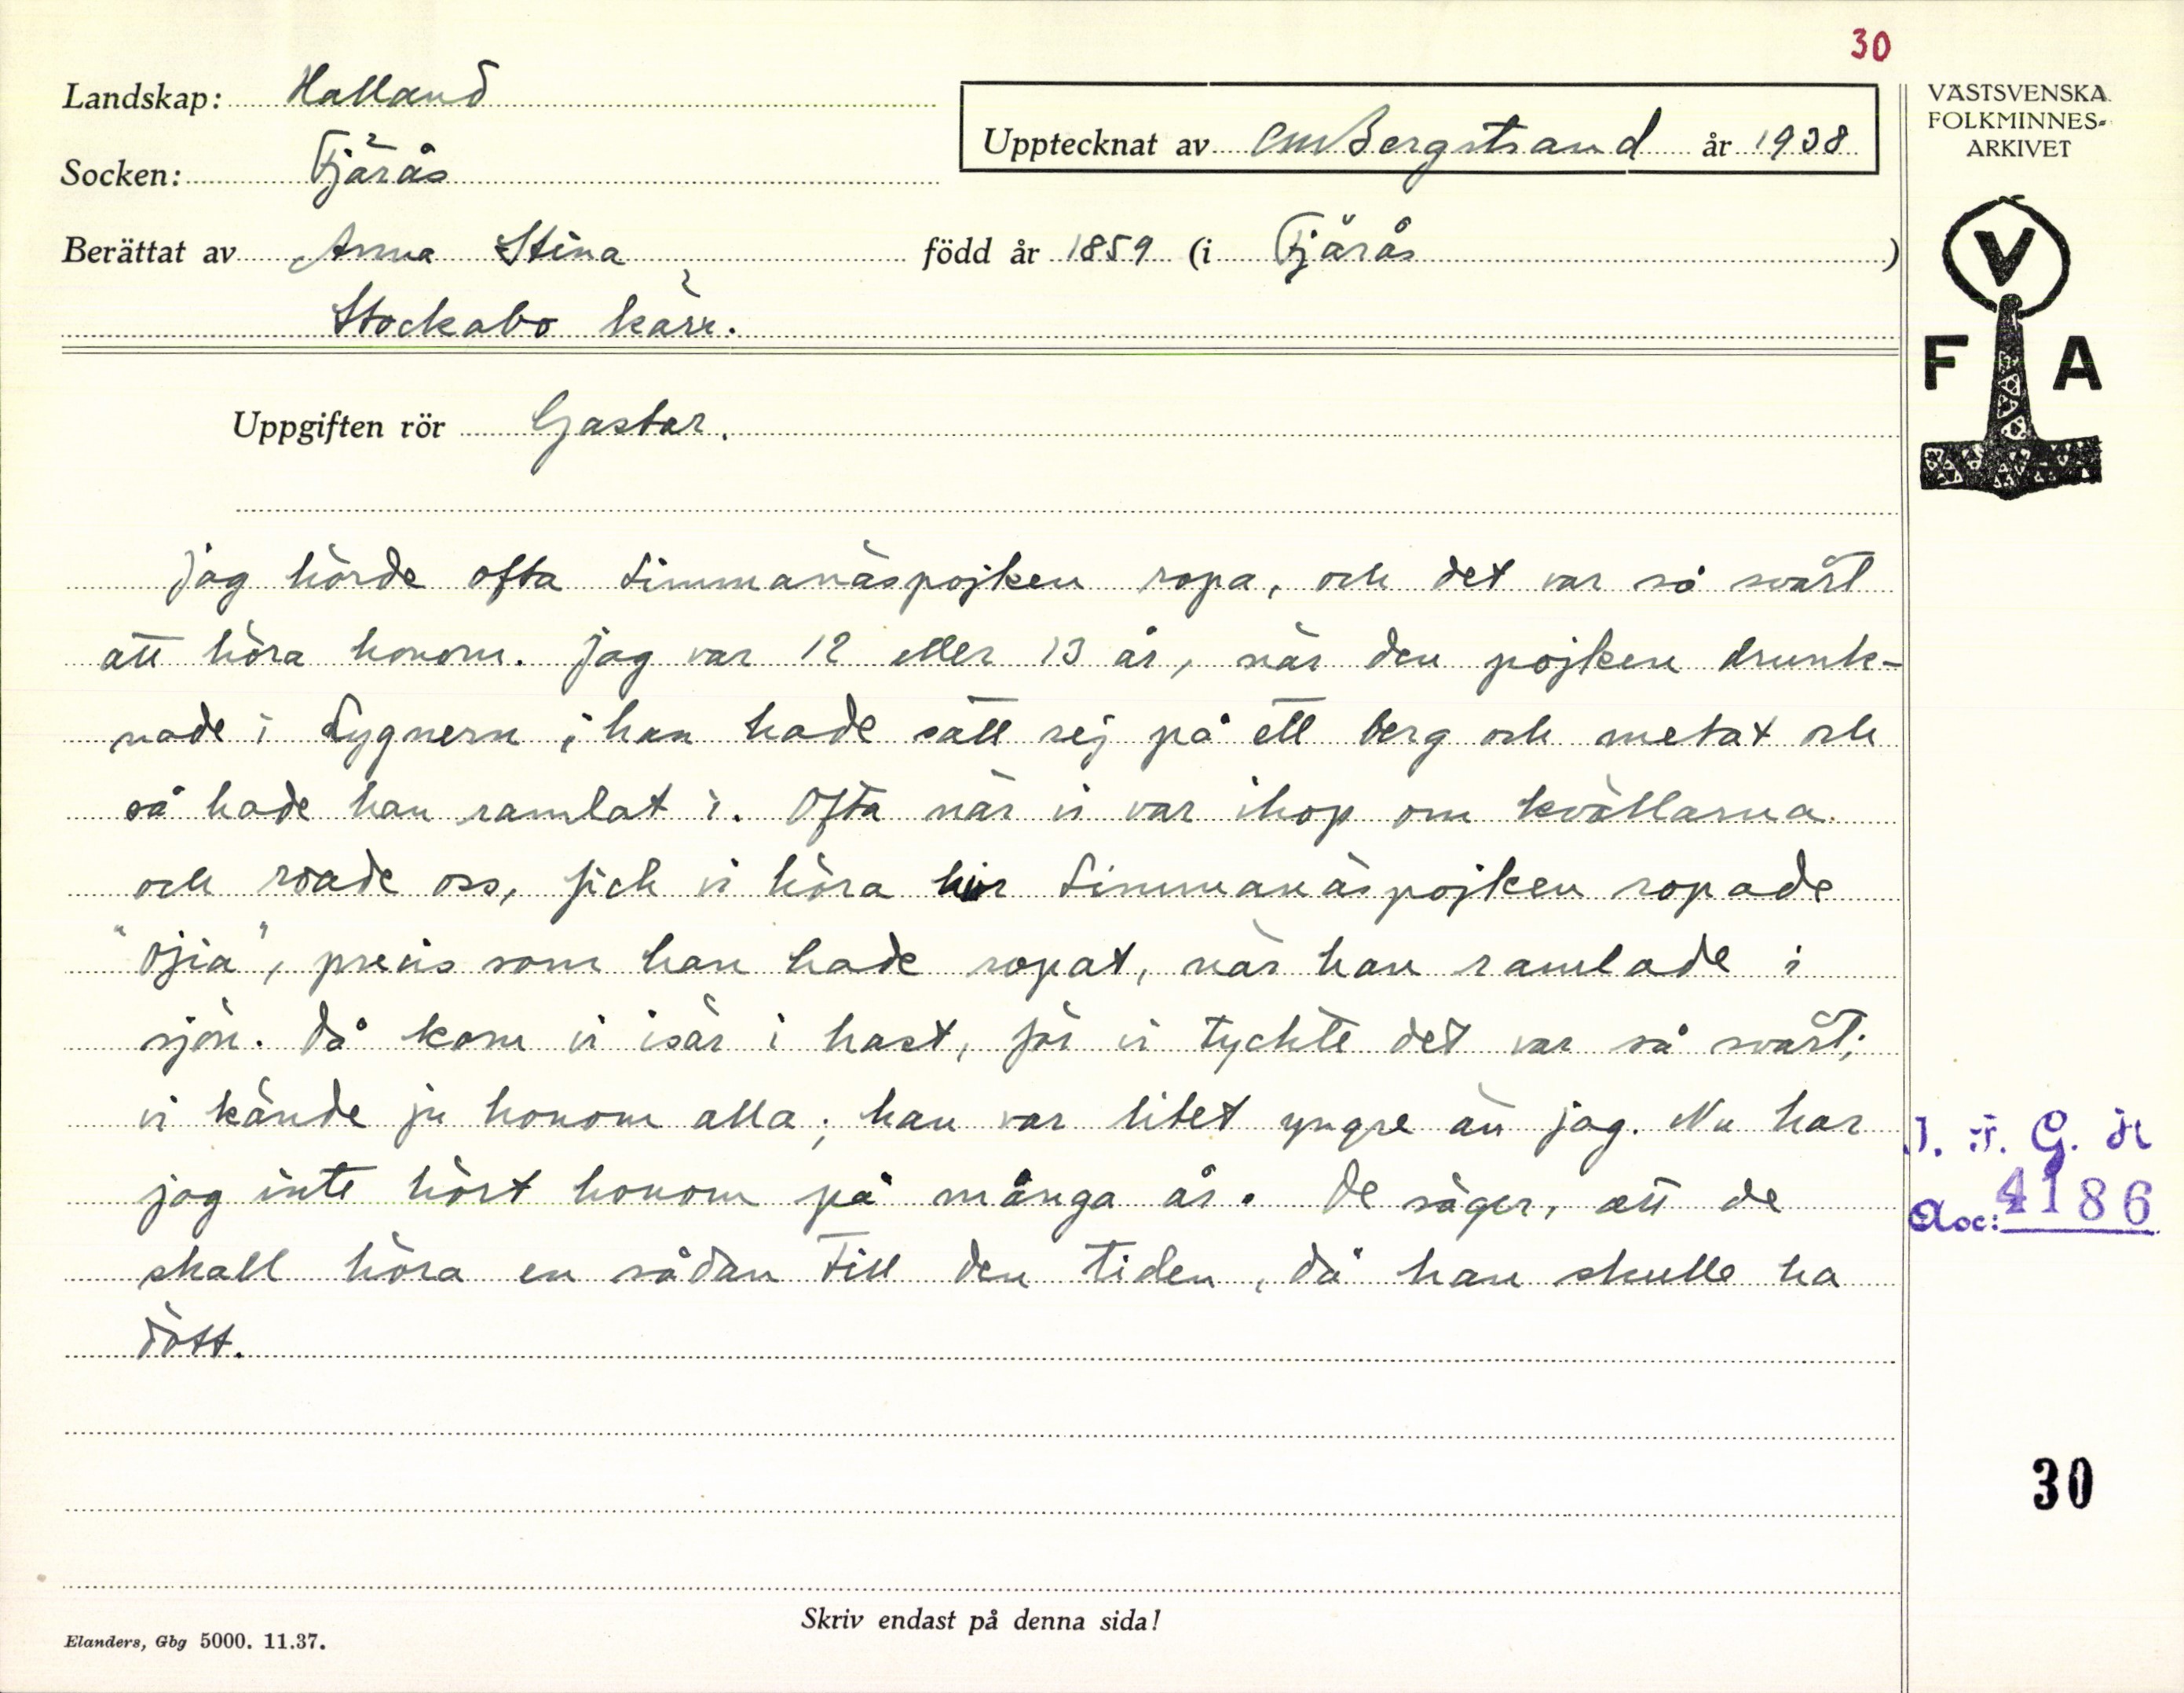 30
Landskap: Halland
Socken: Fjärås
Upptecknat av CM Bergstrand år 1938
VÄSTSVENSKA
FOLKMINNES-
ARKIVET
Berättat av Anna Stina född år 1859 (i Fjärås )
Stockabo kärr.
V
F A
Uppgiften rör Gastar.
Jag hörde ofta Limmanäspojken ropa, och det var så svårt
att höra honom. Jag var 12 eller 13 år, när den pojken drunk-
nade i Lygnern; han hade satt sej på ett berg och metat och
så hade han ramlat i. Ofta när vi var ihop om kvällarna
och roade oss, fick vi höra hur Limmanäspojken ropade
"Ojia", precis som han hade ropat, när han ramlade i
sjön. Då kom vi isär i hast, för vi tyckte det var så svårt;
vi kände ju honom alla; han var litet yngre än jag. Nu har
jag inte hört honom på många år. De säger, att de
skall höra en sådan till den tiden, då han skulle ha
dött.
I. F. G. H
Acc: 4186
30
Skriv endast på denna sida!
Elanders, Gbg 5000. 11.37.